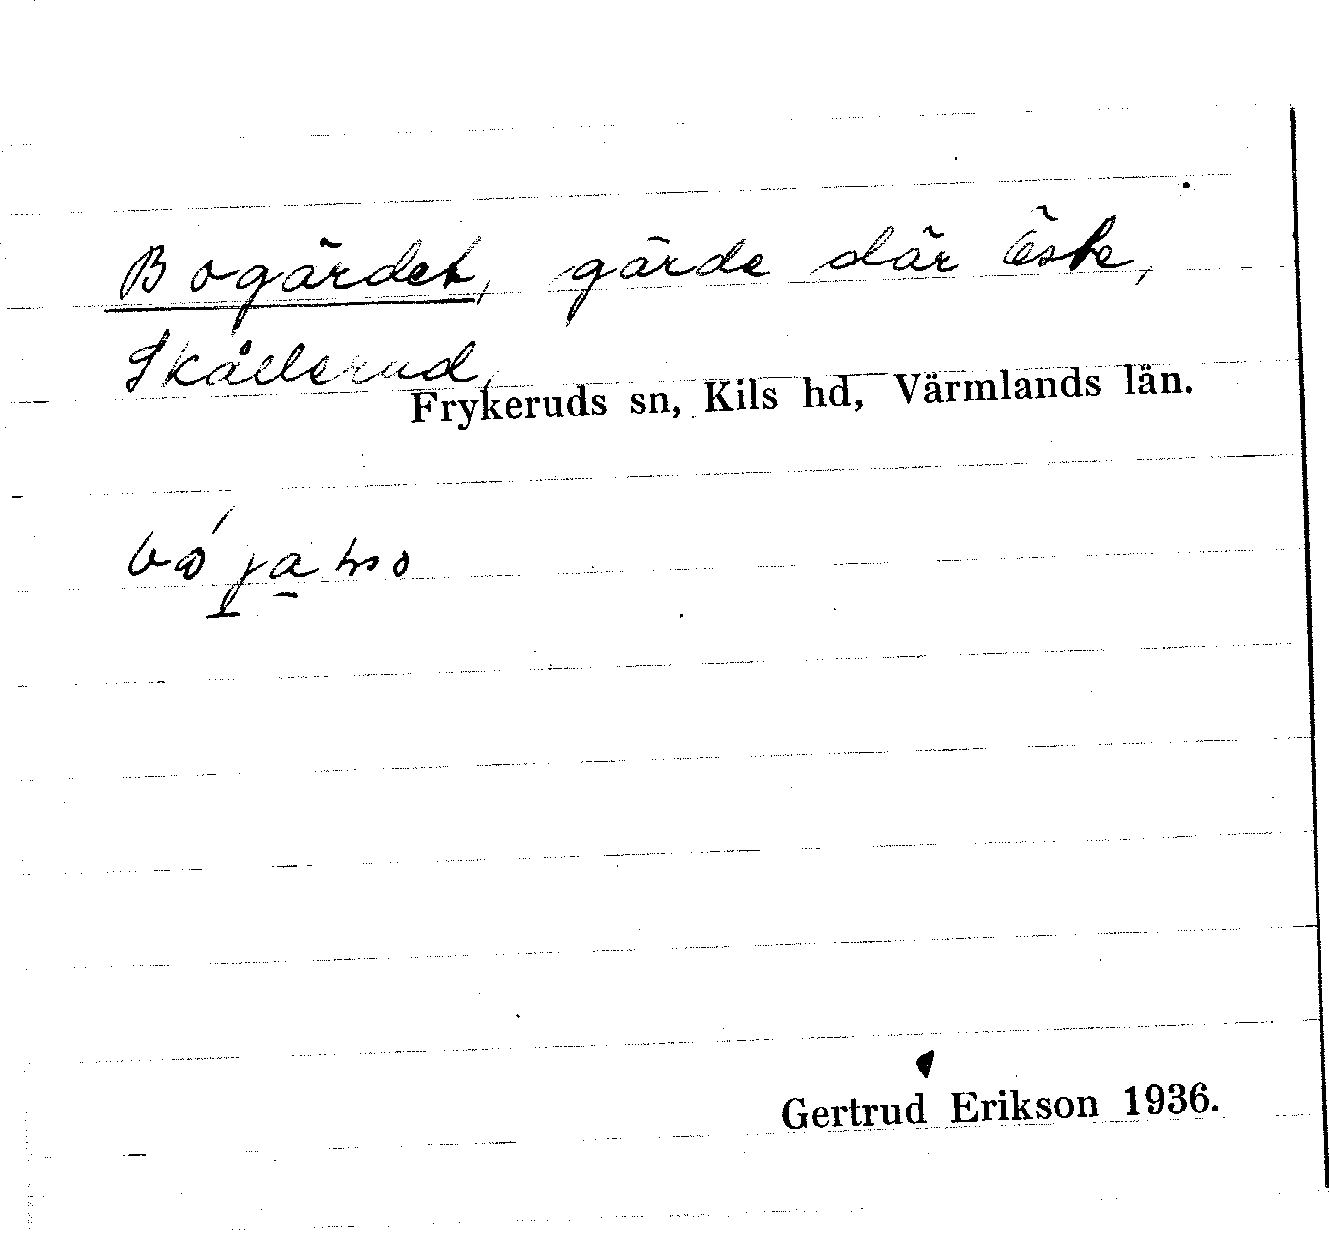 Bogärdet, gärde där öste,
Skållerud,
Frykeruds sn, Kils hd, Värmlands län.
Gertrud Erikson 1936.